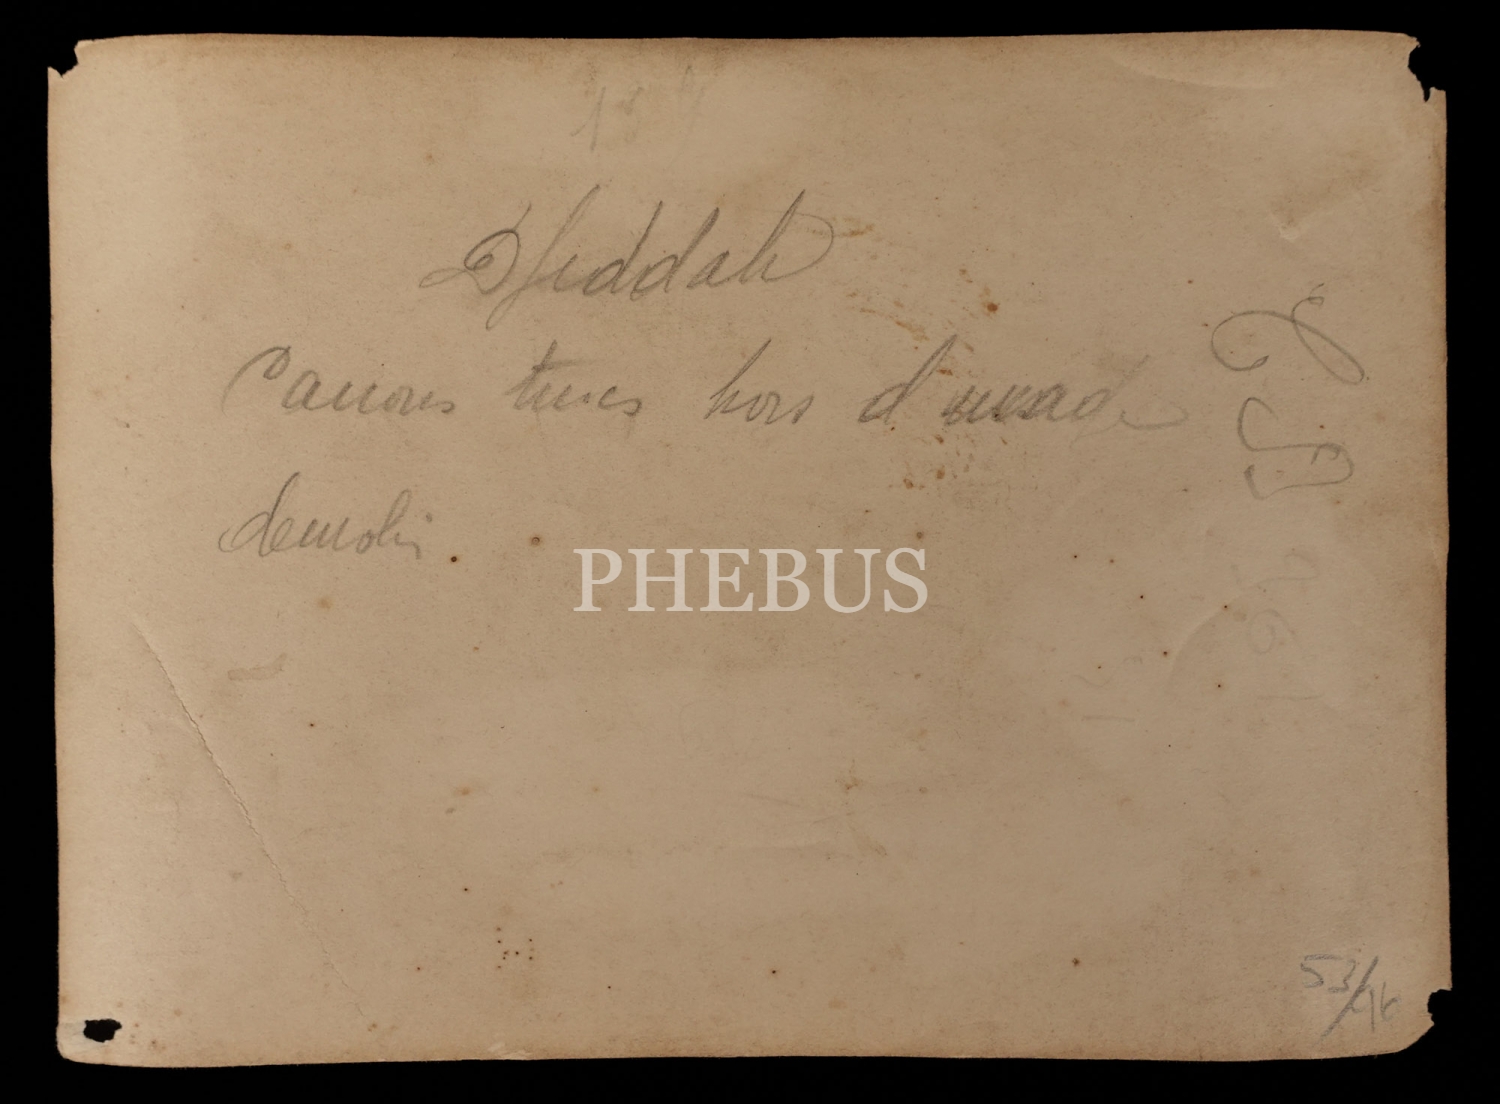 Djeddah
Canons turcs hors d'usage
demolis
PHEBUS
53/